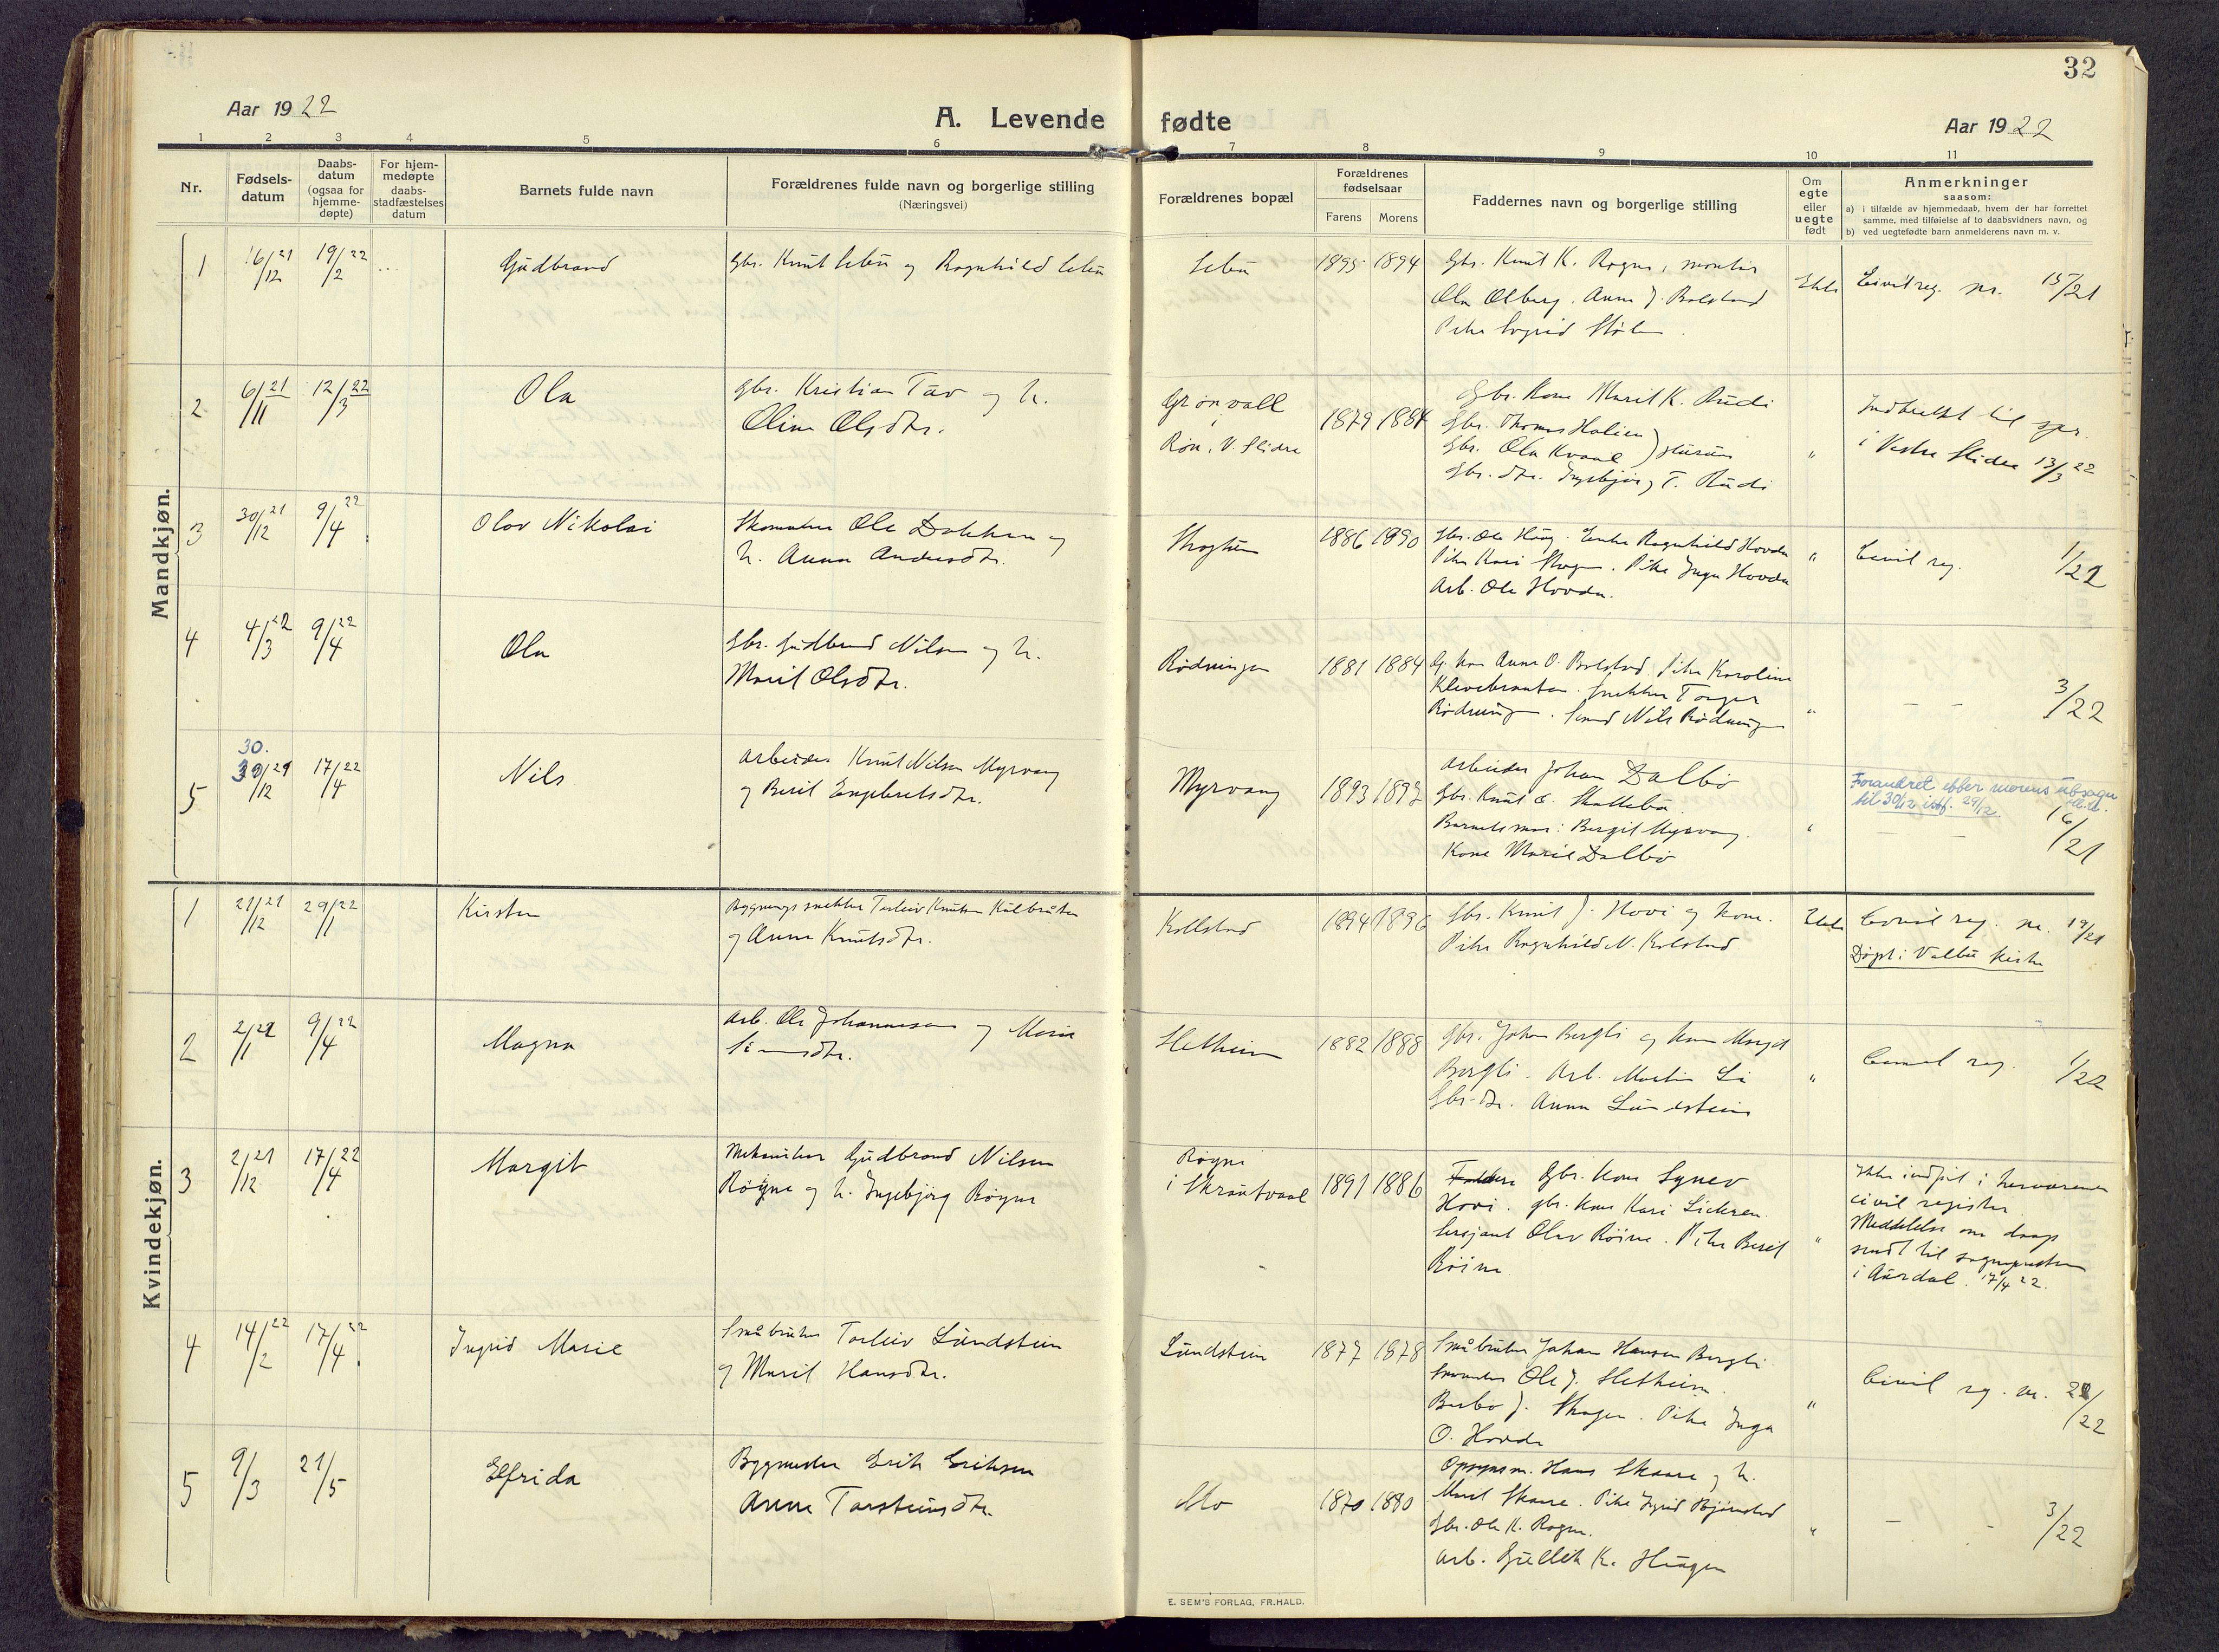 32
Aar 1922
A. Levende fødte
Aar 1922
1 2 3 4 5 6 7 8 9 10 11
Nr.
Fødsels-
datum
Daabs-
datum
(ogsaa for
hjemme-
døpte)
For hjem-
medøpte
daabs-
stadfæstelses
datum
Barnets fulde navn
Forældrenes fulde navn og borgerlige stilling
(Næringsvei)
Forældrenes bopæl
Forældrenes
fødselsaar
Farens Morens
Faddernes navn og borgerlige stilling
Om
egte
eller
uegte
født
Anmerkninger
saasom:
a) i tilfælde av hjemmedaab, hvem der har forrettet
samme, med tilføielse af to daabsvidners navn, og
b) ved uegtefødte barn anmelderens navn m. v.
Mandkjøn.
1 16/12 21 19/2 22 Gudbrand Gbr. Knut og Ragnhild 1895 1894 Gbr. Knut K. Rogne,
Ola Ølberg. Anne J. Bolstad
Pike Sigrid
Civilreg. nr. 15/21
2 6/11 21 12/3 22 Ola Gbr. Kristian Tav og h.
Oline Olsdtr.
Grønvall
Røn, V. Slidre
1879 1884
Gbr. Kone Marit K. Rudi
Gbr. Thomas Halien
Gbr. Ola Kvaal
Gbr. dtr. Ingebjørg T. Rudi
"
Indberettet til spr.
i Vestre Slidre 13/3 22
3 30/12 21 9/4 22 Olav Nikolai Skomaker Ole Dokken og
h. Anna Andersdtr.
1886 1890
Enke Ragnhild Hovda
Pike Kari Skogen. Pike Inga Hovda
Arb. Ole Hovda.
"
Civil reg. 1/22
4 4/3 22 9/4 22 Ola Gbr. Gudbrand Nilsen og h.
Marit Olsdtr.
Rødningen 1881 1884
G. kone Anne O. Bolstad. Pike Karoline
Klevebraaten. Snekker Torger
Rødningen. Nils Rødningen
"
– – 3/22
5 30. 30/12 21 17/4 22 Nils Arbeider Knut Nilsen Myrvang
og Berit Engebretsdtr.
Myrvang 1893 1897
Arbeider Johan Dalbø
Gbr. Knut
Barnets mor: Bergit Myrvang.
Kone Marit Dalbø
"
Forandret efter morens utsagn
til 30/12 istf. 29/12.
16/21
Kvindekjøn.
1 21/12 21 29/1 22 Kirsten Bygningssnekker Torleiv Knutsen Kalbråten
og Anne Knutsdtr.
Kollstad 1894 1896
Gbr. Knut J. Hovi og kone.
Pike Ragnhild N. Kolstad
Civil reg. nr. 19/21
Døpt i Volbu kirke
2 2/1 22 9/4 22 Magna Arb. Ole Johannessen og Marie
Sletheim 1882 1888
Gbr. Johan Bergli og kone Margit
Bergli. Arb. Martin Li
Gbr. dtr. Anna Lundstein
"
Civil reg. 1/22
3 2/12 21 17/4 22 Margit Mekaniker Gudbrand Nilsen
Røyne og h. Ingebjørg Røyne
Røyne
i Skrautvaal
1891 1886
Gbr. Kone Synev
Hovi. Gbr. kone Kari
Sersjant Olav Røine. Pike Berit
Røine
"
Ikke indført i herværende
civil register
Meddelelse om daap
sendt til sogneprsten
i Aurdal. 17/4 22.
4 14/2 22 17/4 22 Ingrid Marie Småbruker Torleiv Lundstein
og Marit Hansdtr.
Lundstein 1877 1878
Småbruker Johan Hansen Bergli
Ole J. Sletheim.
Barbo J. Skogen. Pike Inga
O. Hovda
"
Civil reg. nr. 22/22
5 9/3 21/5 Elfrida Byggmester Erik Eriksen
Anne Torsteinsdtr.
Mo 1870 1880
Opsynsm. Hans Skaare og h.
Marit Skaare. Pike Ingrid Bjørnstad
Gbr. Ole K. Rogne.
Arb. Gullik K. Haugen
"
– – 3/22
E. SEM'S FORLAG, FR.HALD.